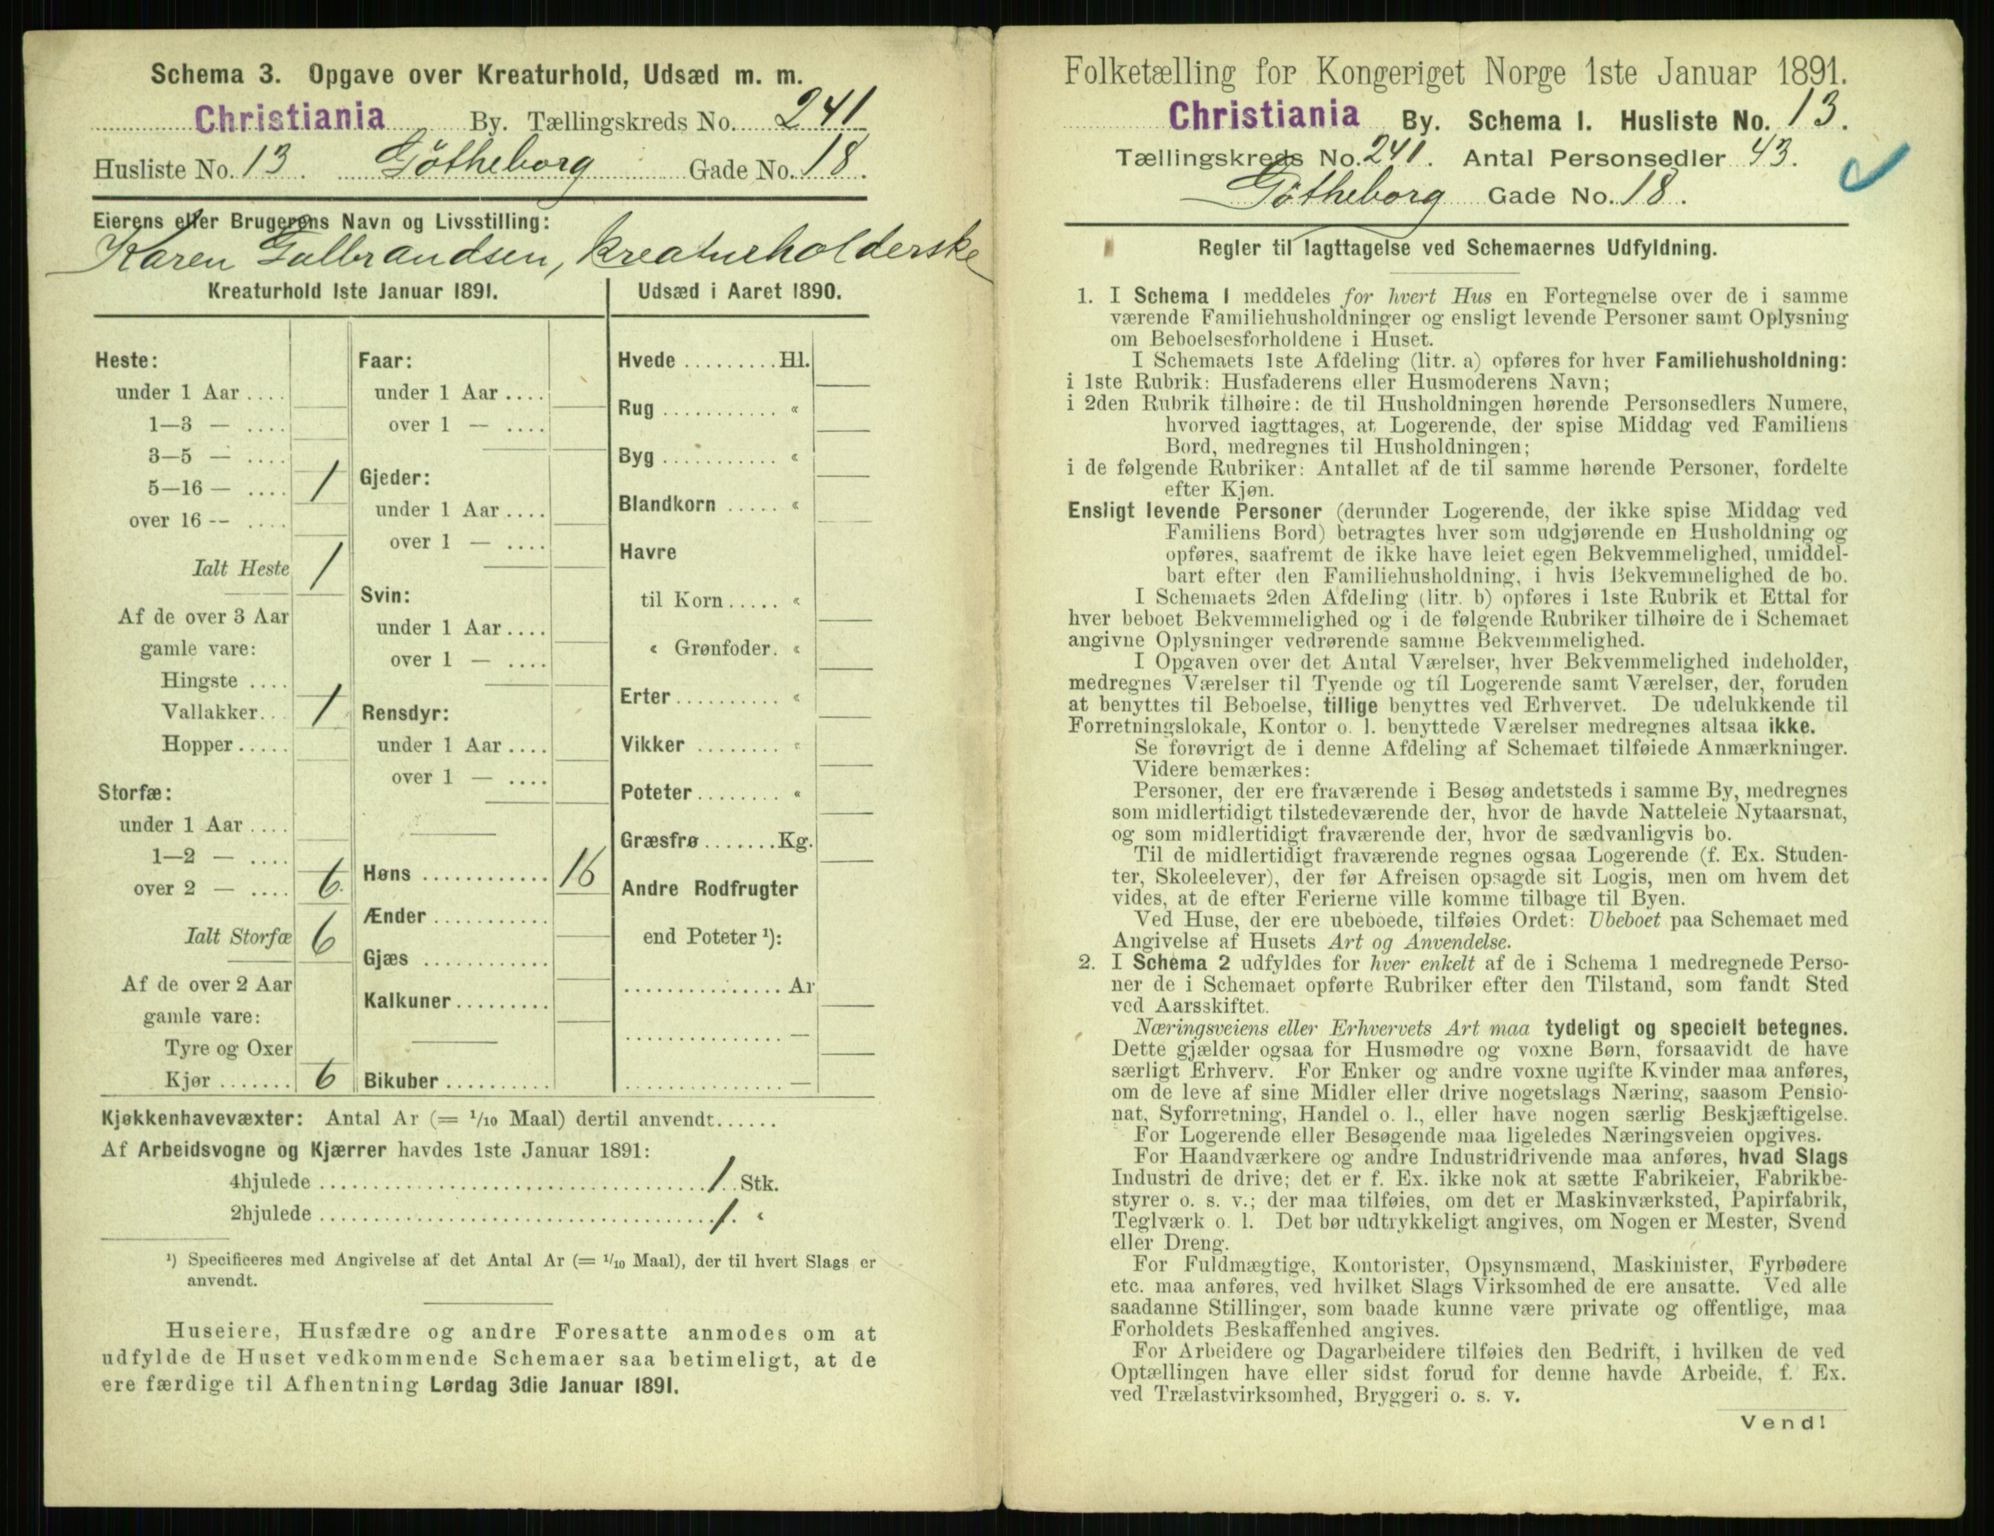 Schema 3. Opgave over Kreaturhold, Udsæd m. m.
Christiania By. Tællingskreds No. 241
Husliste No. 13. Götheborg Gade No. 18.
Eierens eller Brugerens Navn og Livsstilling:
Karen Gulbrandsen, kreaturholderske
Kreaturhold 1ste Januar 1891.
Heste:
under 1 Aar ....
1—3 — ....
3—5 — ....
5—16 — .... 1
over 16 -- ....
Ialt Heste 1
Af de over 3 Aar
gamle vare:
Hingste ....
Vallakker... 1
Hopper.....
Storfæ:
under 1 Aar ....
1—2 — ....
over 2 — .... 6.
Ialt Storfæ 6
Af de over 2 Aar
gamle vare:
Tyre og Oxer
Kjør ....... 6
Faar:
under 1 Aar ....
over 1 — ....
Gjeder:
under 1 Aar ....
over 1 — ....
Svin:
under 1 Aar ....
over 1 — ....
Rensdyr:
under 1 Aar ....
over 1 — ....
Høns ............ 16
Ænder ...........
Gjæs ............
Kalkuner.........
Bikuber ..........
Udsæd i Aaret 1890.
Hvede ......... Hl.
Rug ........... «
Byg ........... «
Blandkorn ..... «
Havre
til Korn ..... «
« Grønfoder. «
Erter .......... «
Vikker ........ «
Poteter ........ «
Græsfrø ....... Kg.
Andre Rodfrugter
end Poteter ¹):
............... Ar
............... —
............... —
Kjøkkenhavevæxter: Antal Ar (= 1/10 Maal) dertil anvendt......
Af Arbeidsvogne og Kjærrer havdes 1ste Januar 1891:
4hjulede .................................. 1. Stk.
2hjulede .................................. 1. «
¹) Specificeres med Angivelse af det Antal Ar (= 1/10 Maal), der til hvert Slags er
anvendt.
Huseiere, Husfædre og andre Foresatte anmodes om at
udfylde de Huset vedkommende Schemaer saa betimeligt, at de
ere færdige til Afhentning Lørdag 3die Januar 1891.
Folketælling for Kongeriget Norge 1ste Januar 1891.
Christiania By. Schema 1. Husliste No. 13.
Tællingskreds No. 241. Antal Personsedler 43.
Götheborg Gade No. 18.
Regler til Iagttagelse ved Schemaernes Udfyldning.
1. I Schema 1 meddeles for hvert Hus en Fortegnelse over de i samme
værende Familiehusholdninger og ensligt levende Personer samt Oplysning
om Beboelsesforholdene i Huset.
I Schemaets 1ste Afdeling (litr. a) opføres for hver Familiehusholdning:
i 1ste Rubrik: Husfaderens eller Husmoderens Navn;
i 2den Rubrik tilhøire: de til Husholdningen hørende Personsedlers Numere,
hvorved iagttages, at Logerende, der spise Middag ved Familiens
Bord, medregnes til Husholdningen;
i de følgende Rubriker: Antallet af de til samme hørende Personer, fordelte
efter Kjøn.
Ensligt levende Personer (derunder Logerende, der ikke spise Middag ved
Familiens Bord) betragtes hver som udgjørende en Husholdning og
opføres, saafremt de ikke have leiet egen Bekvemmelighed, umiddel-
bart efter den Familiehusholdning, i hvis Bekvemmelighed de bo.
I Schemaets 2den Afdeling (litr. b) opføres i 1ste Rubrik et Ettal for
hver beboet Bekvemmelighed og i de følgende Rubriker tilhøire de i Schemaet
angivne Oplysninger vedrørende samme Bekvemmelighed.
I Opgaven over det Antal Værelser, hver Bekvemmelighed indeholder,
medregnes Værelser til Tyende og til Logerende samt Værelser, der, foruden
at benyttes til Beboelse, tillige benyttes ved Erhvervet. De udelukkende til
Forretningslokale, Kontor o. l. benyttede Værelser medregnes altsaa ikke.
Se forøvrigt de i denne Afdeling af Schemaet tilføiede Anmærkninger.
Videre bemærkes:
Personer, der ere fraværende i Besøg andetsteds i samme By, medregnes
som midlertidigt tilstedeværende der, hvor de havde Natteleie Nytaarsnat,
og som midlertidigt fraværende der, hvor de sædvanligvis bo.
Til de midlertidigt fraværende regnes ogsaa Logerende (f. Ex. Studen-
ter, Skoleelever), der før Afreisen opsagde sit Logis, men om hvem det
vides, at de efter Ferierne ville komme tilbage til Byen.
Ved Huse, der ere ubeboede, tilføies Ordet: Ubeboet paa Schemaet med
Angivelse af Husets Art og Anvendelse.
2. I Schema 2 udfyldes for hver enkelt af de i Schema 1 medregnede Perso-
ner de i Schemaet opførte Rubriker efter den Tilstand, som fandt Sted
ved Aarsskiftet.
Næringsveiens eller Erhvervets Art maa tydeligt og specielt betegnes.
Dette gjælder ogsaa for Husmødre og voxne Børn, forsaavidt de have
særligt Erhverv. For Enker og andre voxne ugifte Kvinder maa anføres,
om de leve af sine Midler eller drive nogetslags Næring, saasom Pensio-
nat, Syforretning, Handel o. l., eller have nogen særlig Beskjæftigelse.
For Logerende eller Besøgende maa ligeledes Næringsveien opgives.
For Haandværkere og andre Industridrivende maa anføres, hvad Slags
Industri de drive; det er f. Ex. ikke nok at sætte Fabrikeier, Fabrikbe-
styrer o. s. v.; der maa tilføies, om det er Maskinværksted, Papirfabrik,
Teglværk o. l. Det bør udtrykkeligt angives, om Nogen er Mester, Svend
eller Dreng.
For Fuldmægtige, Kontorister, Opsynsmænd, Maskinister, Fyrbødere
etc. maa anføres, ved hvilket Slags Virksomhed de ere ansatte. Ved alle
saadanne Stillinger, som baade kunne være private og offentlige, maa
Forholdets Beskaffenhed angives.
For Arbeidere og Dagarbeidere tilføies den Bedrift, i hvilken de ved
Optællingen have eller sidst forud for denne havde Arbeide, f. Ex.
ved Trælastvirksomhed, Bryggeri o. s. v.
Vend!